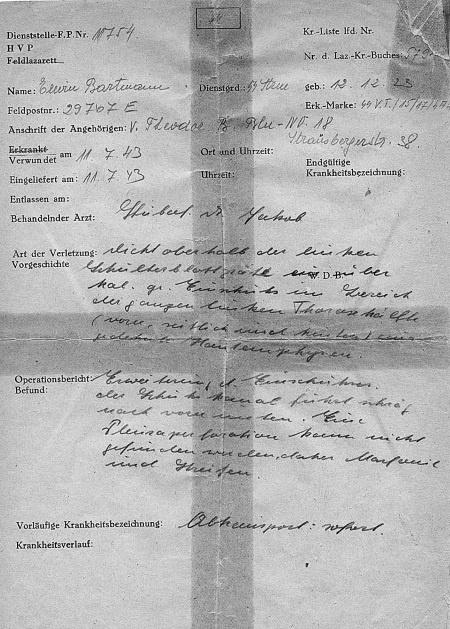 Dienststelle-F.P.Nr. 11754.
Kr.-Liste lfd. Nr.
H V P
Feldlazarett
Nr. d. Laz.-Kr.-Buches:
Name: Erwin Bartmann Dienstgrd.: geb.: 12. 12. 23
Feldpostnr.: 29707 E Erk.-Marke:
Anschrift der Angehörigen: V. Theodor B. Bln-NO. 18
Strausbergerstr. 38
Erkrankt
Verwundet am 11. 7. 43 Ort und Uhrzeit: Endgültige
Krankheitsbezeichnung:
Eingeliefert am: 11. 7. 43 Uhrzeit:
Entlassen am:
Behandelnder Arzt: Stubaf. Dr. Jakob
Art der Verletzung: Dicht oberhalb der linken
Vorgeschichte Schulterblattgräte W. D. B. über
gr. Einschuß im Bereich
der ganzen linken Thoraxhälfte
(vorn, seitlich und hinten)
Hautemphysem.
Operationsbericht: Erweiterung d. Einschusses.
Befund: der Schußkanal führt schräg
nach vorn unten. Eine
Pleuraperforation kann nicht
gefunden werden, daher
und Streifen.
Vorläufige Krankheitsbezeichnung: Abtransport: sofort.
Krankheitsverlauf: